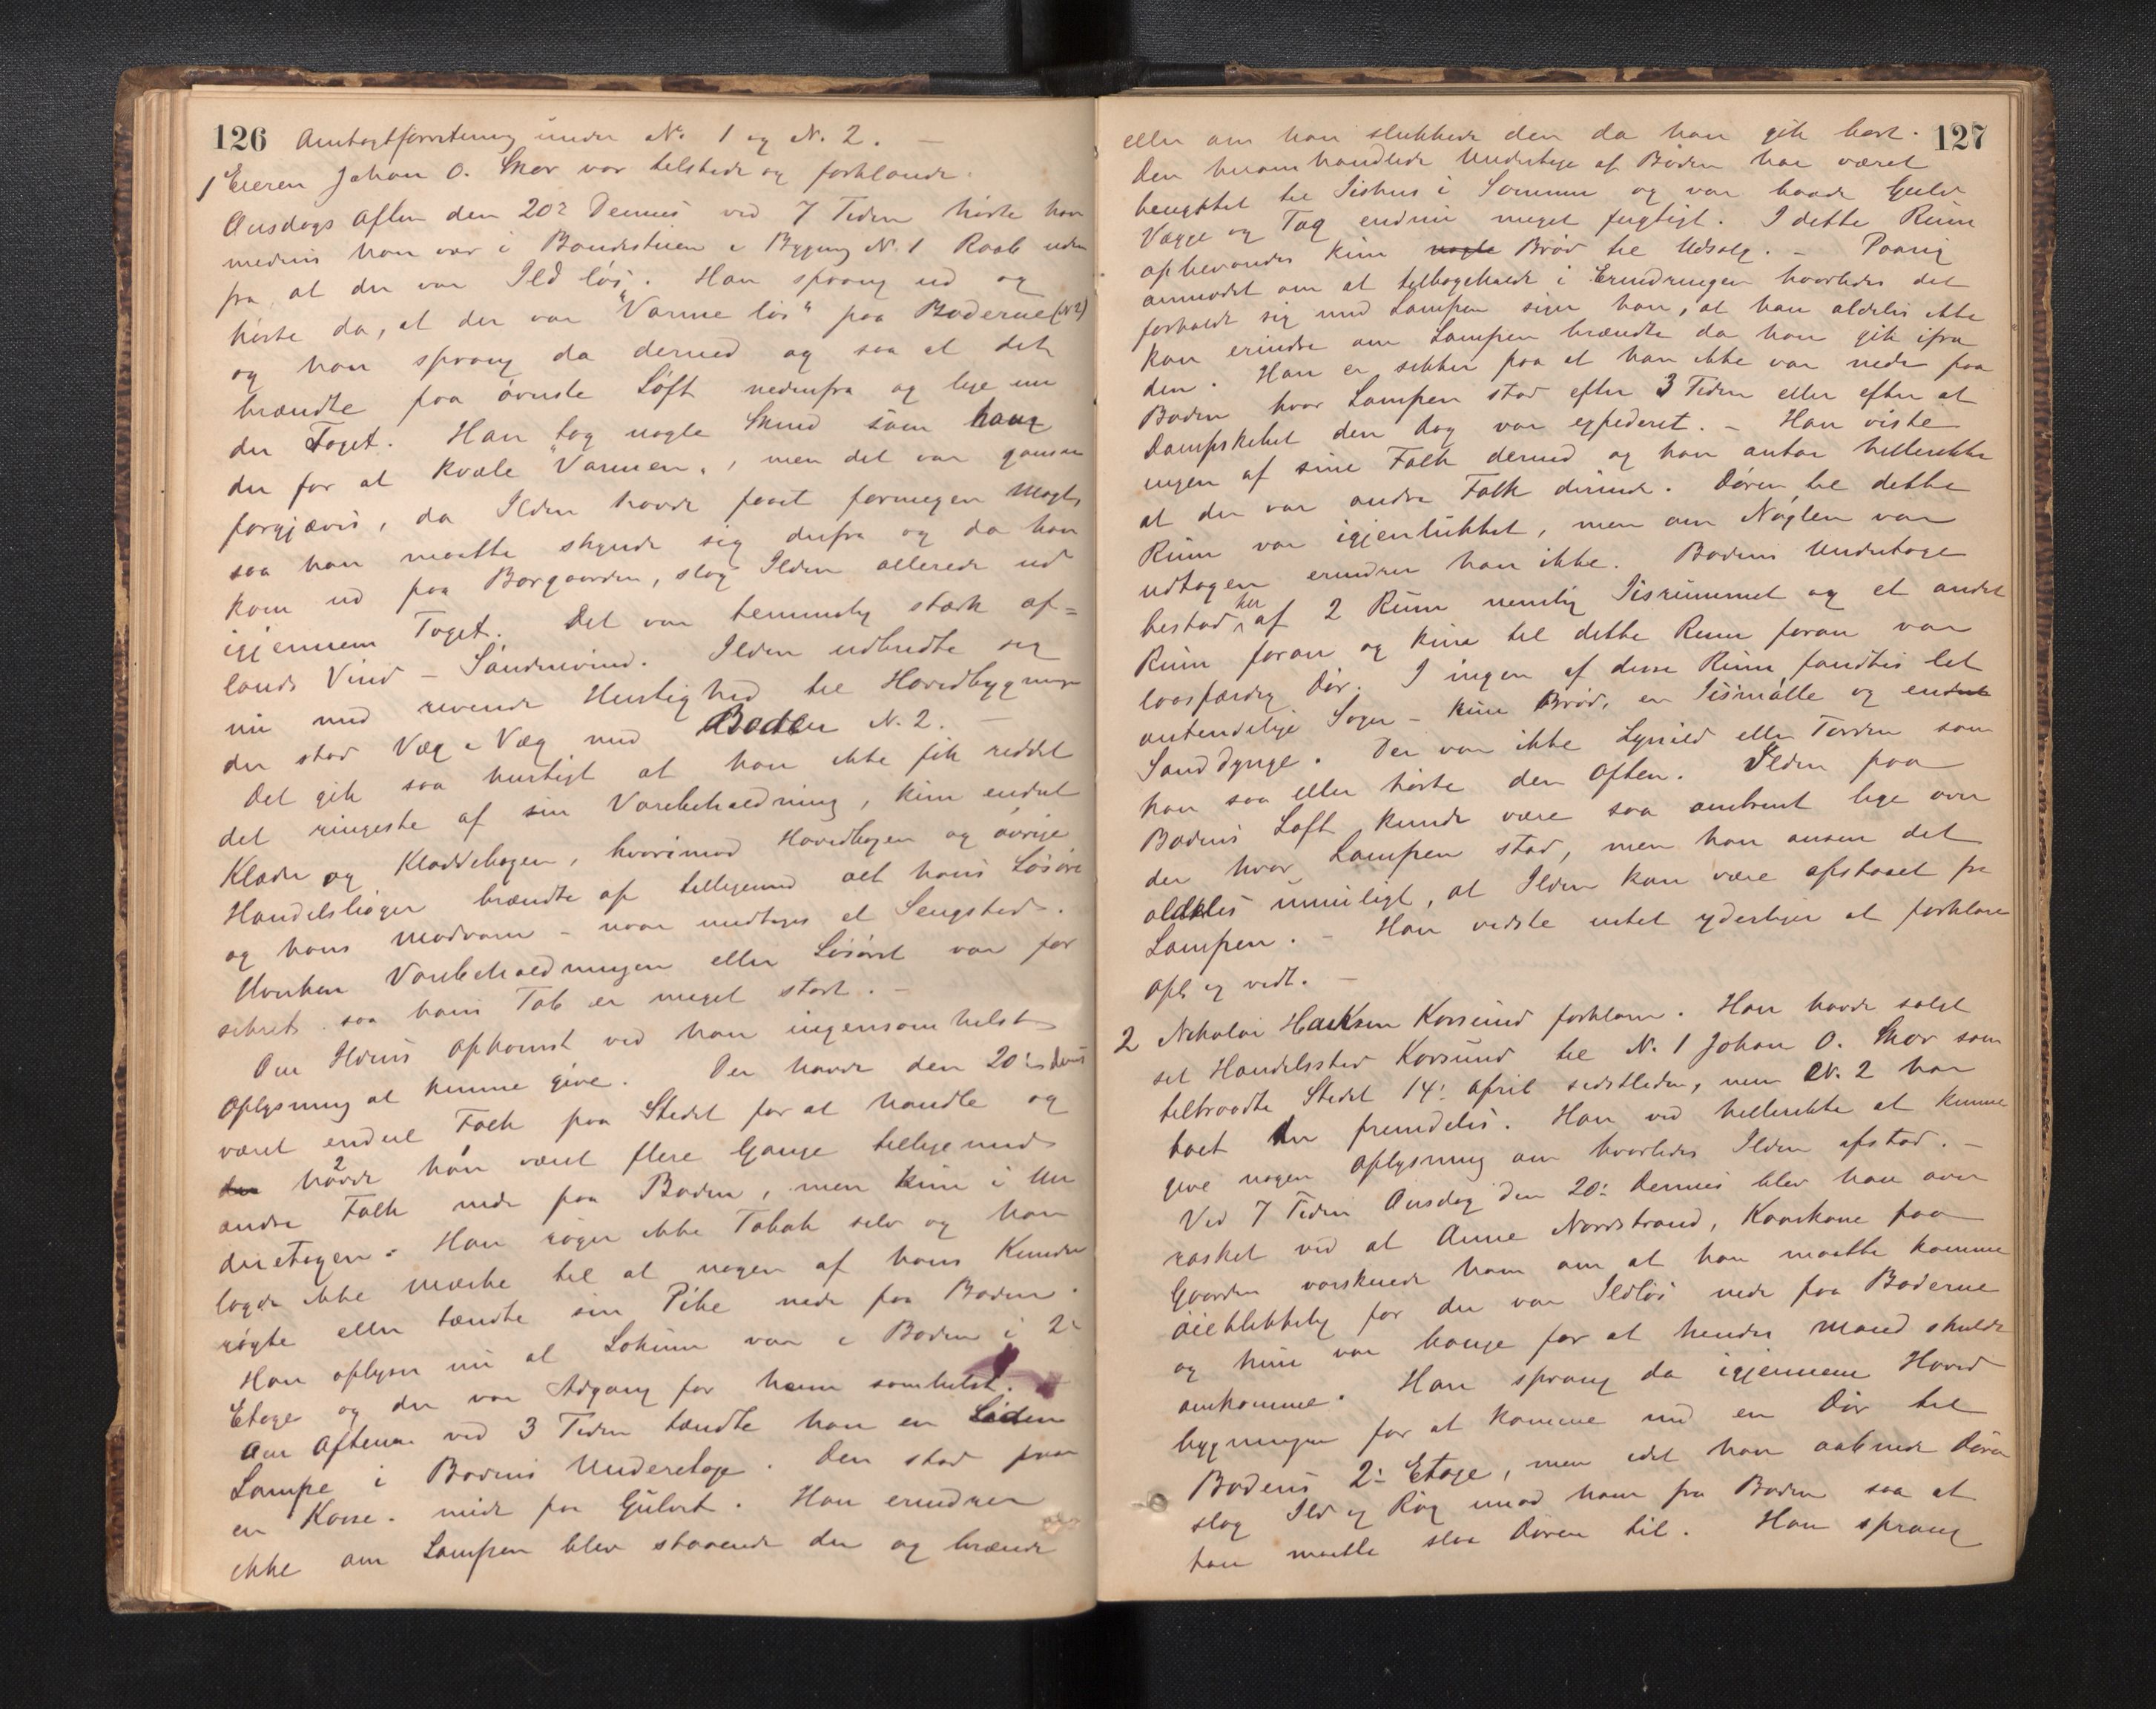 126 Amtagtforretning under No. 1 og N. 2. —
1 Eieren Johan O. Skor var tilstede og forklarede.
Onsdags Aften den 20de Dennes ved 7 Tiden hørte han
medens han var i Bondestuen i Bygning N. 1 Raab uden
fra, at der var Ild løs. Han sprang ud og
hørte da, at der var "Varme løs" paa Boderne (N2)
og han sprang da derned og saa at det
brændte paa øverste Loft nedenfra og lige un
der Taget. Han tog nogle Skind som hang
der for at kvæle "Varmen", men det var ganske
forgjæves, da Ilden havde faaet formegen Magt,
saa han maatte skynde sig derfra og da han
kom ud paa Borgaarden, slog Ilden allerede ud
igjennem Taget. Det var temmelig stærk af=
lands Vind – Søndenvind. Ilden udbredte sig
nu med rivende Hurtighed til Hovedbygningen
der stod Væg i Væg med Boden N. 2. —
Det gik saa hurtigt at han ikke fik reddet
det ringeste af sin Varebeholdning, kun endel
Klæder og Kladdebogen, hvorimod Hovedbogen og øvrige
Handelsbøger brændte op tilligemed alt hans Løsøre
og hans Madvarer – naar undtages et Sengsted.
Hverken Varebeholdningen eller Løsøret var for
sikret saa hans Tab er meget stort. —
Om Ildens Opkomst ved han ingensomhelst
Oplysning at kunne give. Der havde den 20de ds
været endel Folk paa Stedet for at handle og
der havde han været flere Gange tilligemed 2
andre Folk nede paa Boden, men kun i Un
deretagen. Han røger ikke Tobak selv og han
lagde ikke Mærke til at nogen af hans Kunder
røgte eller tændte sin Pibe nede paa Boden.
Han oplyser nu at Lokum var i Boden i 2den
Etage og der var Adgang for hvem somhelst. —
Om Aftenen ved 3 Tiden tændte han en liden
Lampe i Bodens Underetage. Den stod paa
en Kasse midt paa Gulvet. Han erindrer
ikke om Lampen blev staaende der og brænde
127
eller om han slukkede den da han gik bort.
Den heromhandlede Underetage af Boden har været
benyttet til Iishus i Sommer og var baade Gulv
Vægge og Tag endnu meget fugtigt. I dette Rum
opbevaredes kun nogle Brød til Udsalg. — Paany
anmodet om at tilbagekalde i Erindringen hvorledes det
forholdt sig med Lampen siger han, at han aldeles ikke
kan erindre om Lampen brændte da han gik ifra
den. Han er sikker paa at han ikke var nede paa
Boden hvor Lampen stod efter 3 Tiden eller efter at
Dampskibet den Dag var expederet. — Han viste
ingen af sine Folk derned og han antar hellerikke
at der var andre Folk derinde. Døren til dette
Rum var igjenlukket, men om Nøglen var
udtagen erindrer han ikke. Bodens Underetage
bestod her af 2 Rum nemlig Iisrummet og et andet
Rum foran og kun til dette Rum foran var
laasfærdig Dør. I ingen af disse Rum fandtes let
antendelige Sager – kun Brød, en Iismølle og endnu
Sanddynge. Der var ikke Lynild eller Torden som
han saa eller hørte den Aften. Ilden paa
Bodens Loft kunde være saa omtrent lige over
der hvor Lampen stod, men han anser det
aldeles umuligt, at Ilden kan være opstaaet fra
Lampen. — Han vidste intet yderligere at forklare
Opl. og vedt. —
2 Nikolai Hansen Korssund forklarer. Han havde solgt
sit Handelssted Korssund til N. 1 Johan O. Skor som
tiltraadte Stedet 14de April sidstleden, men N. 2 har
boet der fremdeles. Han ved hellerikke at kunne
give nogen Oplysning om hvorledes Ilden opstod. —
Ved 7 Tiden Onsdag den 20de Dennes blev han over
rasket ved at Anne Nordstrand, Kaarkone paa
Gaarden varskuede ham om at han maatte komme
øieblikkelig for der var Ildløs nede paa Boderne
og hun var bange for at hendes Mand skulde
omkomme. Han sprang da igjennem Hoved
bygningen for at komme ind en Dør til
Bodens 2den Etage, men idet han aabnede Døren
slog Ild og Røg imod ham fra Boden saa at
han maatte slaa Døren til. Han sprang